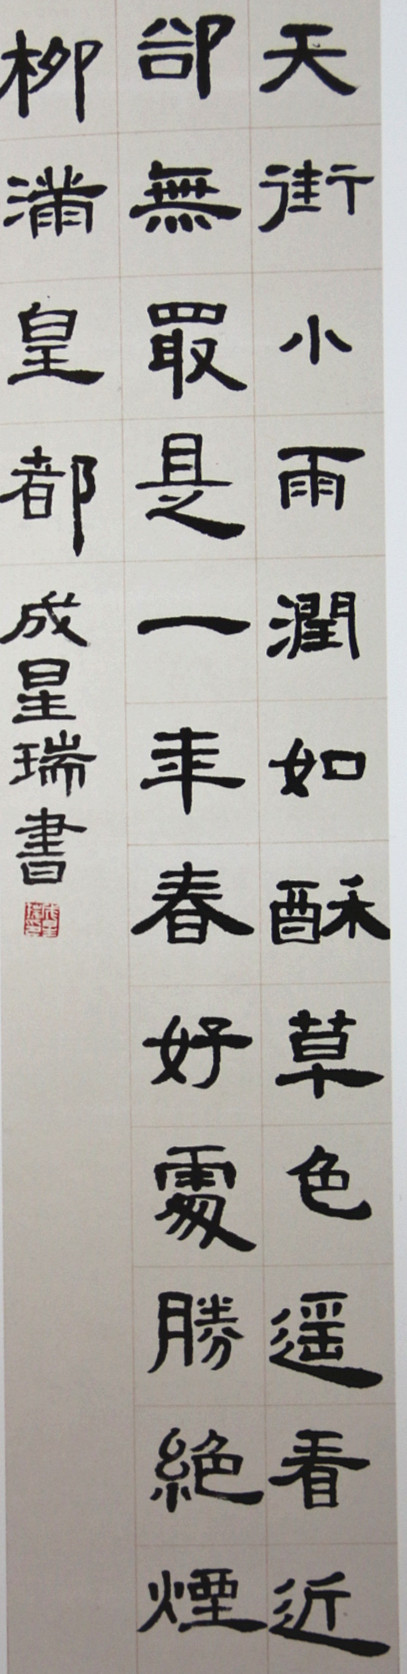 天街小雨潤如酥草色遥看近
卻無最是一年春好處勝絕煙
柳滿皇都
成星瑞書